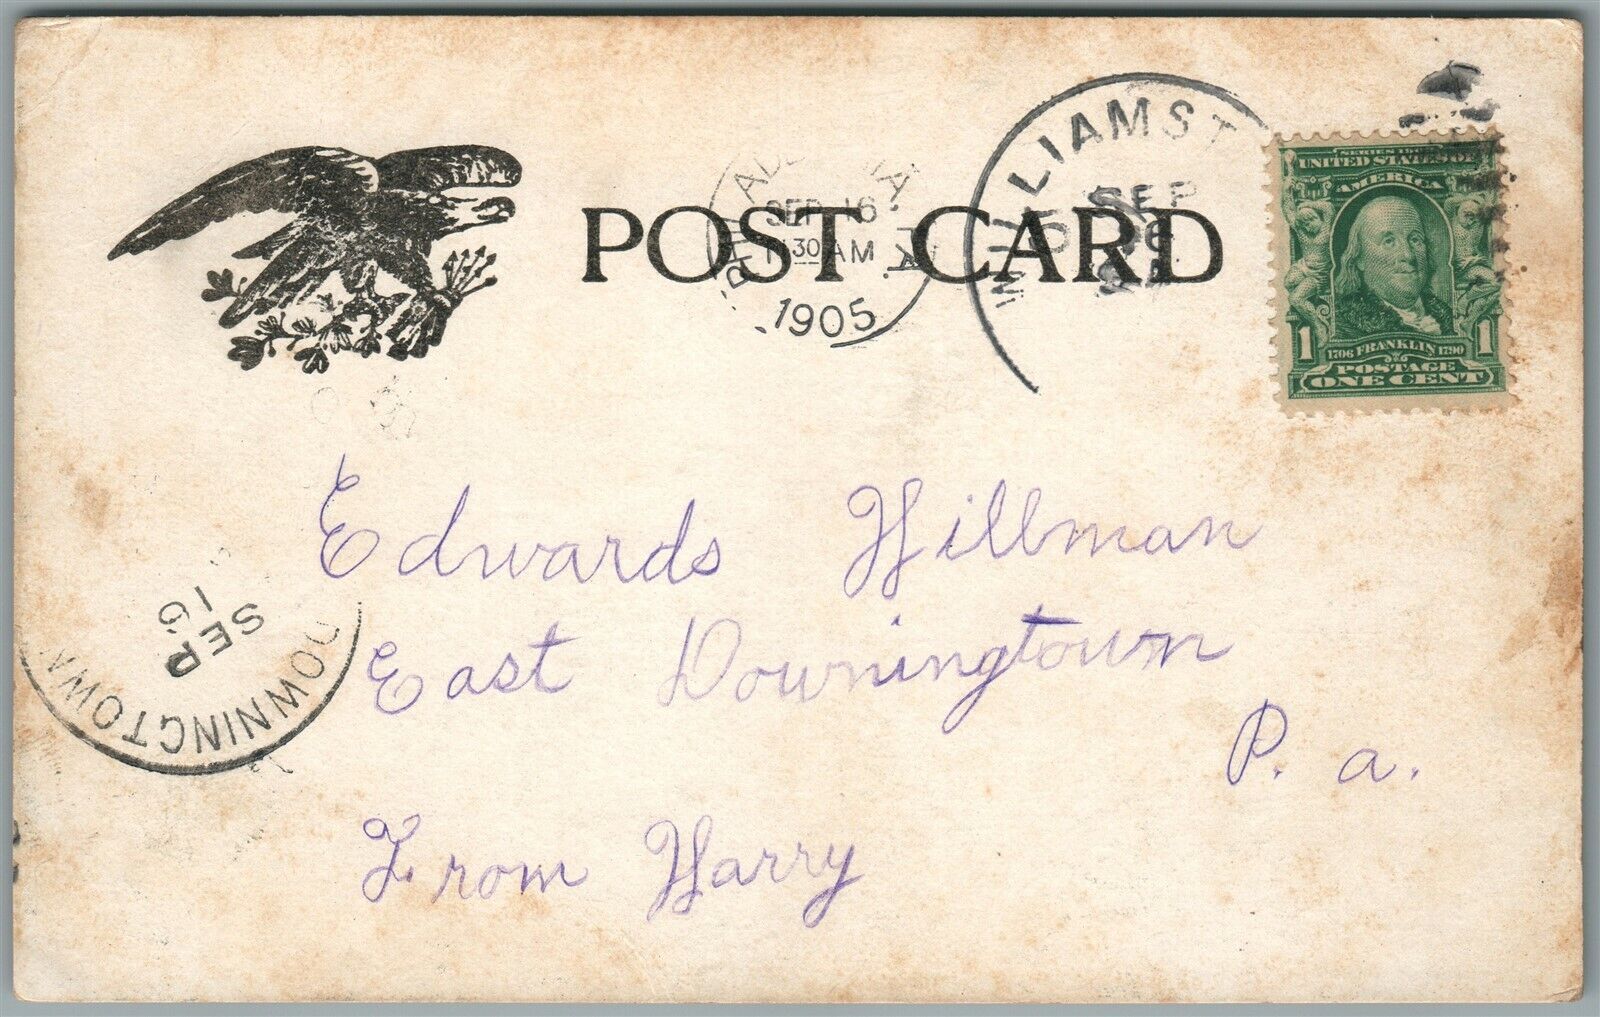 POST CARD
PHILADELPHIA, PA.
SEP 16
30 AM
1905
WILLIAMST
SEP
SERIES 1902
UNITED STATES OF
AMERICA
1 1
1706 FRANKLIN 1790
POSTAGE
ONE CENT
Edwards Hillman
East Downingtown
P. a.
From Harry
DOWNINGTOWN
SEP
16